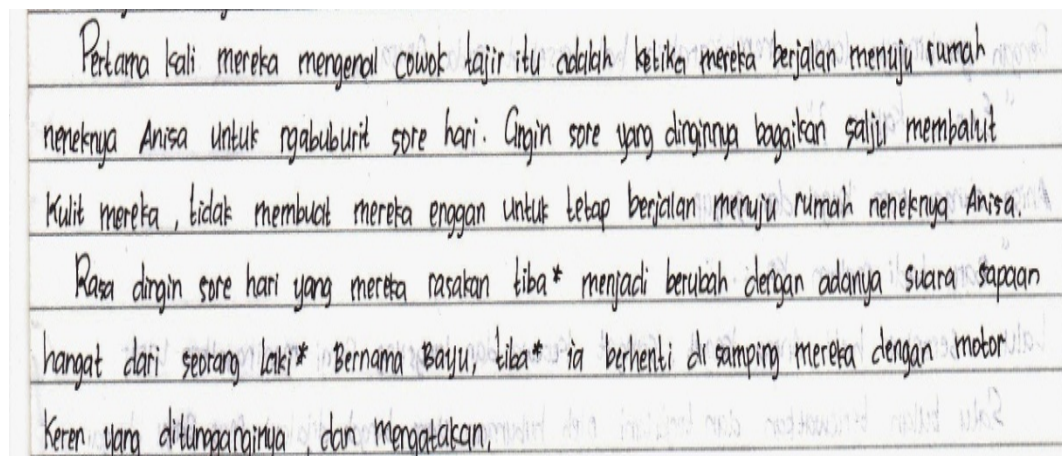 Pertama kali mereka mengenal cowok tajir itu adalah ketika mereka berjalan menuju rumah
neneknya Anisa untuk ngabuburit sore hari. Angin sore yang dinginnya bagaikan salju membalut
Kulit mereka, tidak membuat mereka enggan untuk tetap berjalan menuju rumah neneknya Anisa.
Rasa dingin sore hari yang mereka rasakan tiba* menjadi berubah dengan adanya suara sapaan
hangat dari seorang laki* Bernama Bayu, tiba* ia berhenti di samping mereka dengan motor
keren yang ditungganginya, dan mengatakan,